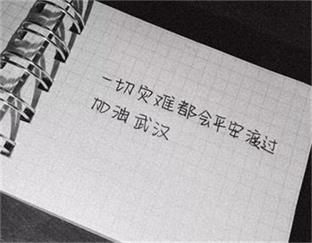 一切灾难都会平安渡过
加油武汉